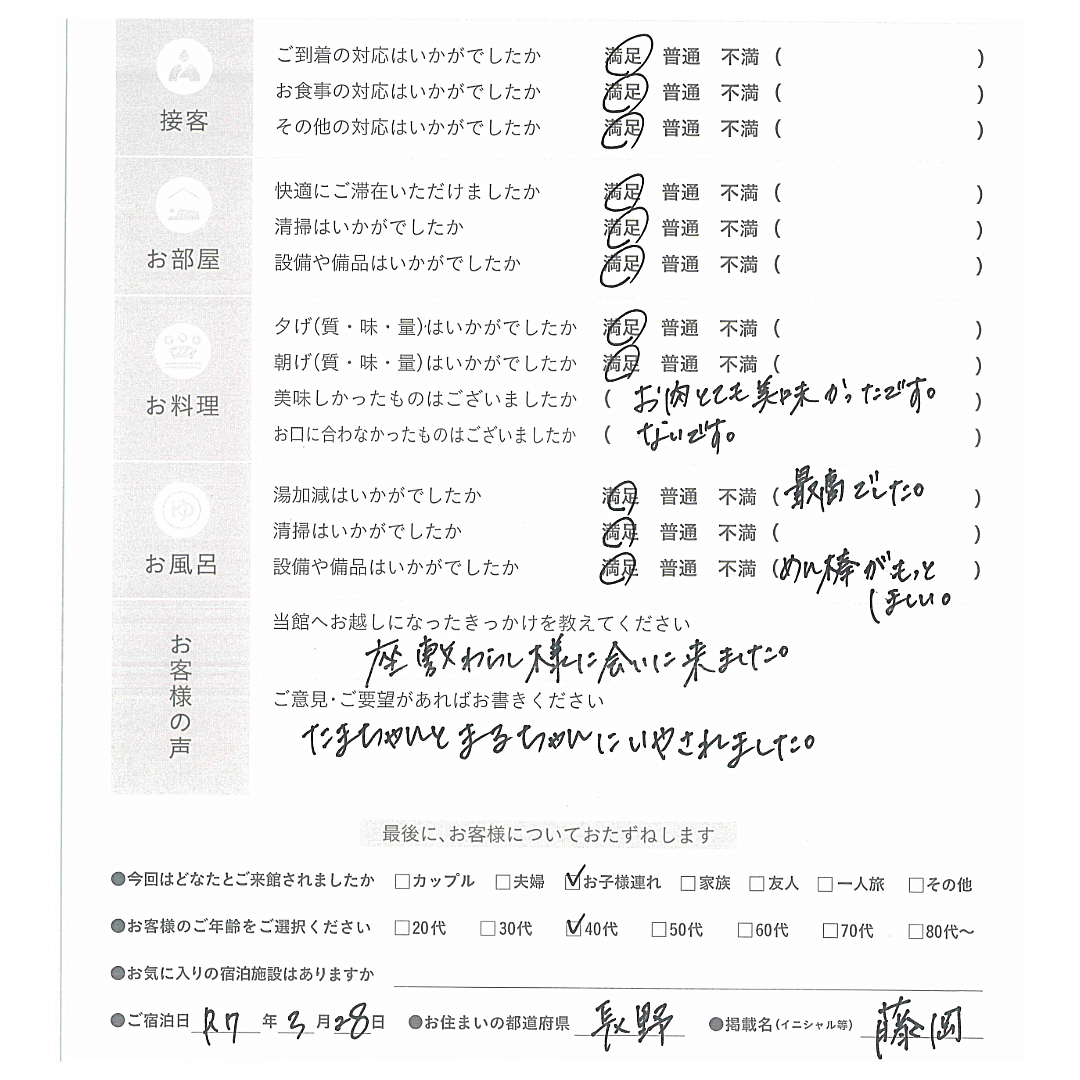 接客
ご到着の対応はいかがでしたか 満足 普通 不満 ( )
お食事の対応はいかがでしたか 満足 普通 不満 ( )
その他の対応はいかがでしたか 満足 普通 不満 ( )
お部屋
快適にご滞在いただけましたか 満足 普通 不満 ( )
清掃はいかがでしたか 満足 普通 不満 ( )
設備や備品はいかがでしたか 満足 普通 不満 ( )
お料理
夕げ(質・味・量)はいかがでしたか 満足 普通 不満 ( )
朝げ(質・味・量)はいかがでしたか 満足 普通 不満 ( )
美味しかったものはございましたか ( お肉とても美味かったです。 )
お口に合わなかったものはございましたか ( ないです。 )
ゆ
お風呂
湯加減はいかがでしたか 満足 普通 不満 ( 最高でした。 )
清掃はいかがでしたか 満足 普通 不満 ( )
設備や備品はいかがでしたか 満足 普通 不満 ( めん棒がもっと )
ほしい。
お客様の声
当館へお越しになったきっかけを教えてください
座敷わらし様に会いに来ました。
ご意見・ご要望があればお書きください
たまちゃんとまるちゃんにいやされました。
最後に、お客様についておたずねします
●今回はどなたとご来館されましたか □カップル □夫婦 ☑お子様連れ □家族 □友人 □一人旅 □その他
●お客様のご年齢をご選択ください □20代 □30代 ☑40代 □50代 □60代 □70代 □80代〜
●お気に入りの宿泊施設はありますか
●ご宿泊日 R7 年 3 月 28 日 ●お住まいの都道府県 長野 ●掲載名(イニシャル等) 藤岡